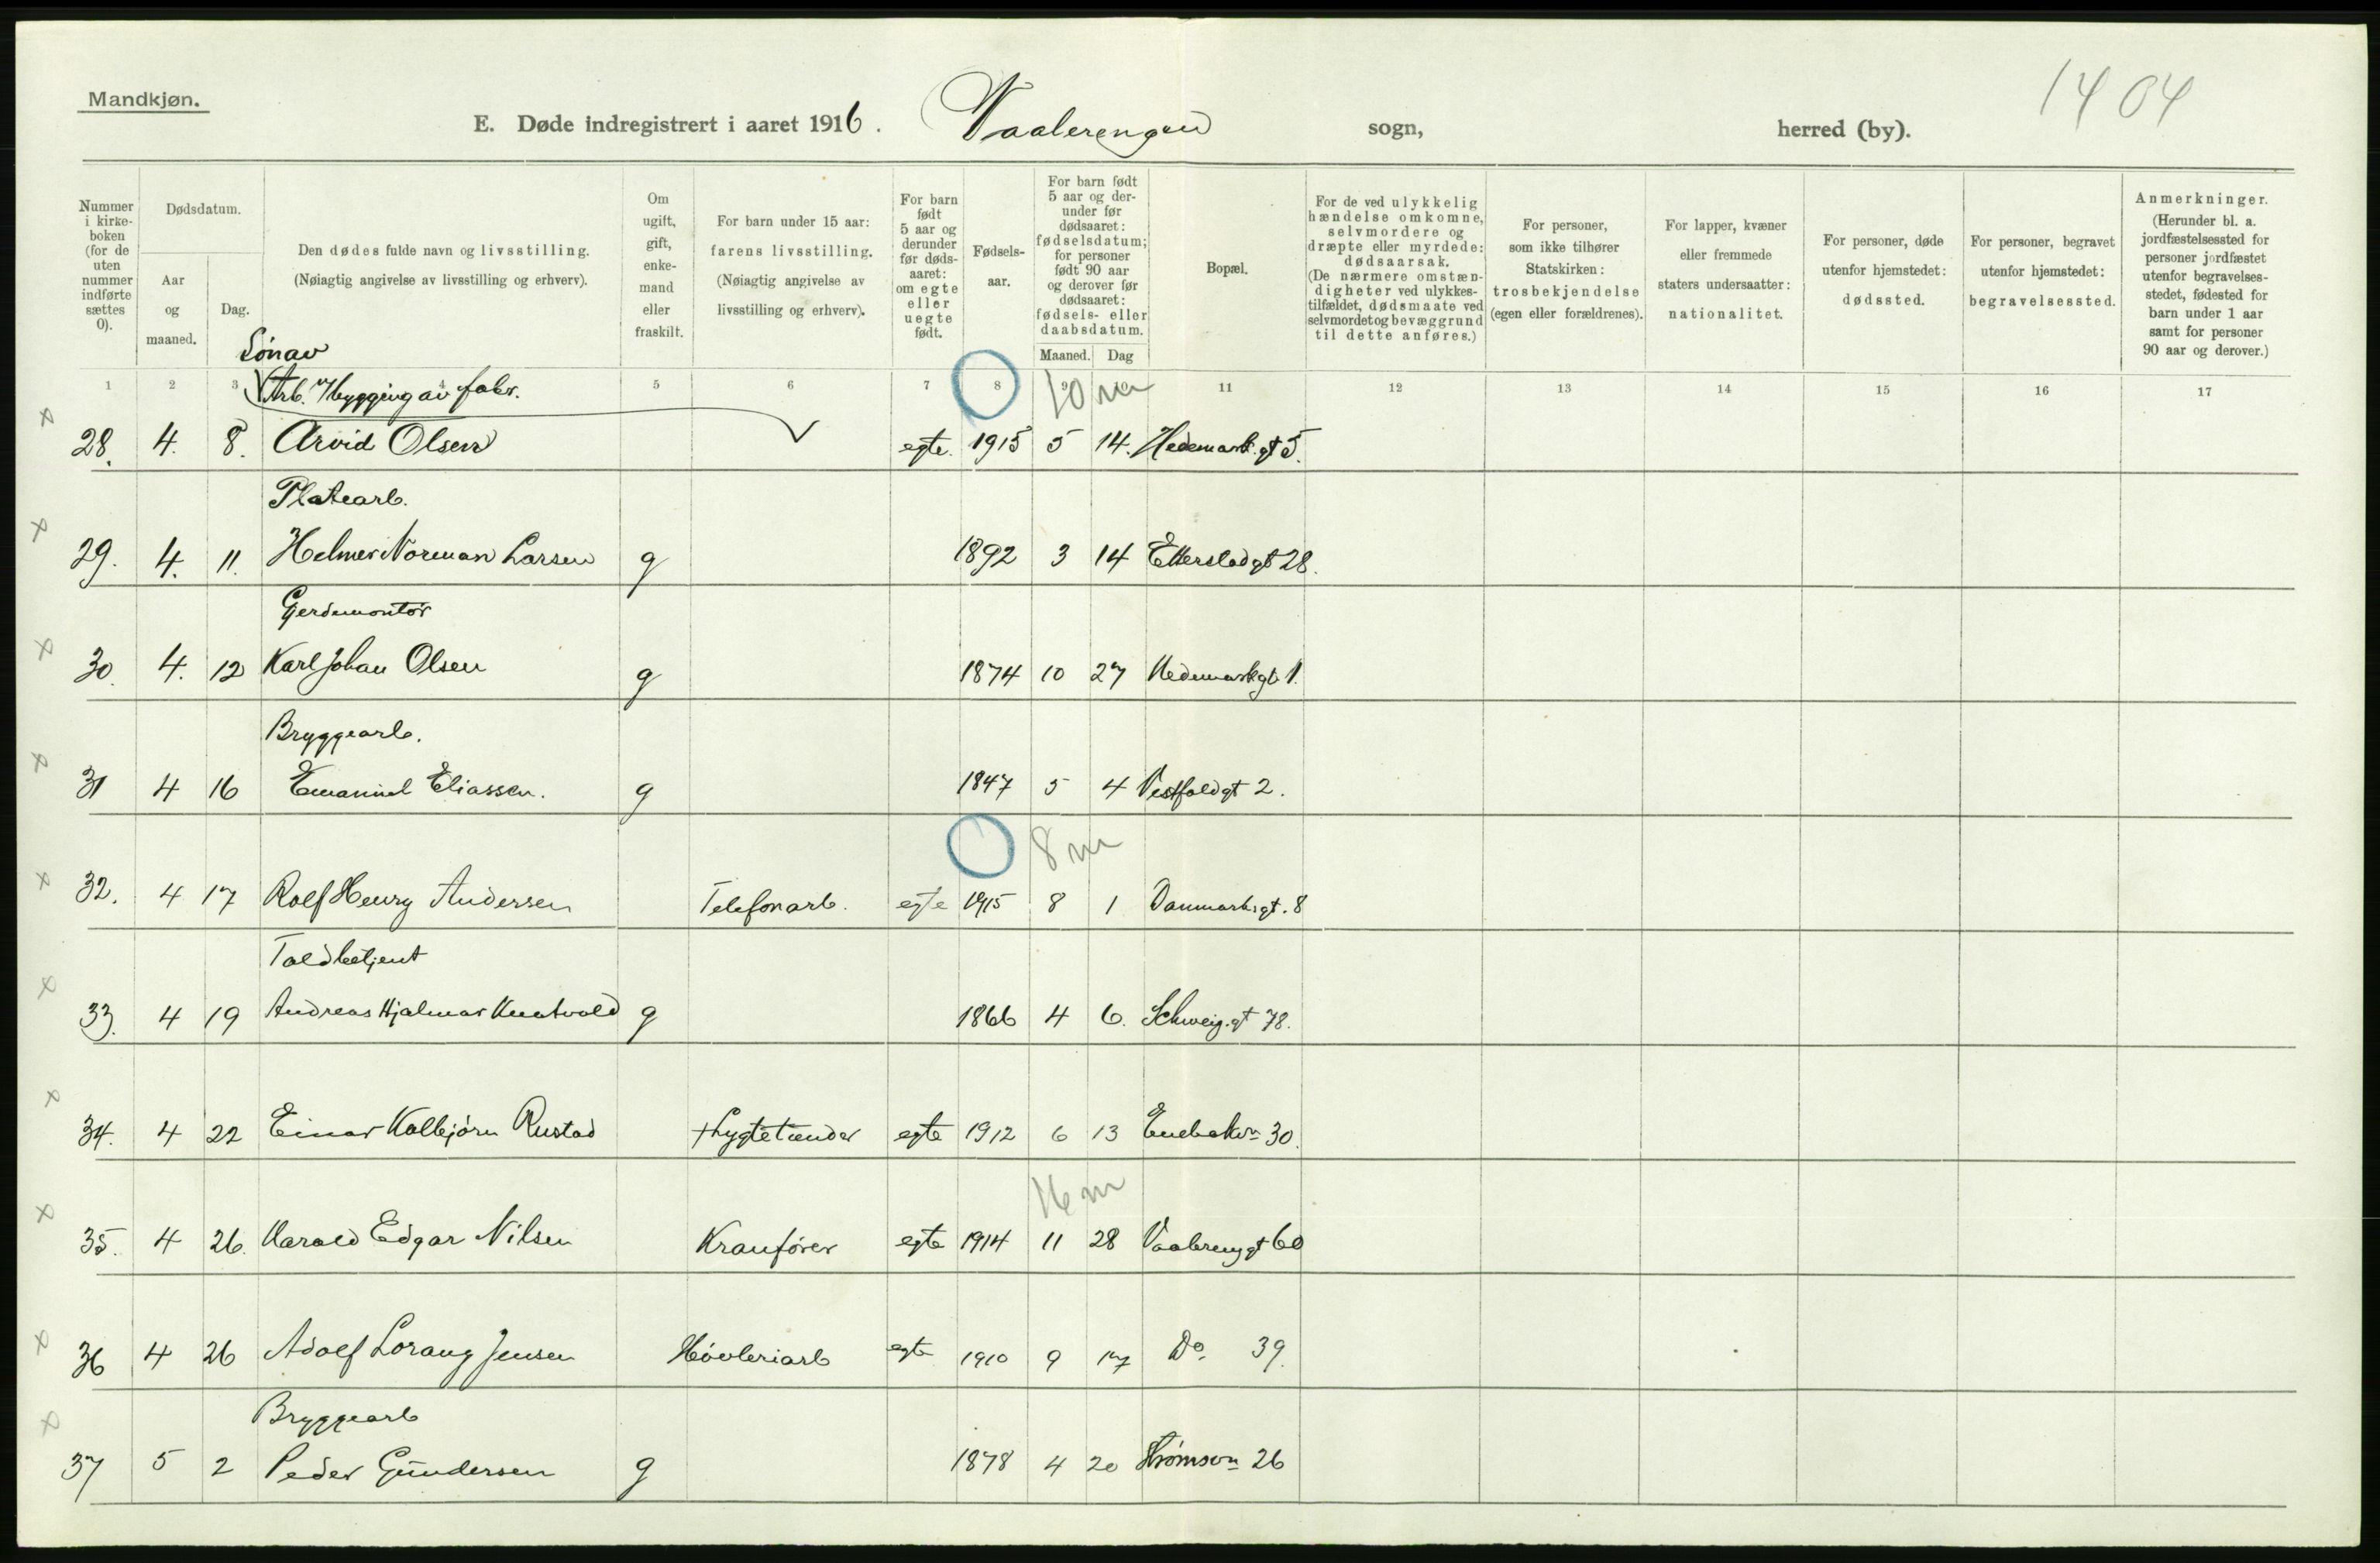 Mandkjøn.
1404
E. Døde indregistrert i aaret 1916. Vaalerengen sogn, herred (by).
Nummer i kirkeboken (for de uten nummer indførte sættes 0).
Dødsdatum.
Aar og maaned.
Dag.
Den dødes fulde navn og livsstilling.
(Nøiagtig angivelse av livsstilling og erhverv).
Om ugift, gift, enkemand eller fraskilt.
For barn under 15 aar: farens livsstilling.
(Nøiagtig angivelse av livsstilling og erhverv).
For barn født 5 aar og derunder før dødsaaret: om egte eller uegte født.
Fødselsaar.
For barn født 5 aar og derunder før dødsaaret: fødselsdatum; for personer født 90 aar og derover før dødsaaret: fødsels- eller daabsdatum.
Maaned. Dag
Bopæl.
For de ved ulykkelig hændelse omkomne, selvmordere og dræpte eller myrdede: dødsaarsak.
(De nærmere omstændigheter ved ulykkestilfældet, dødsmaate ved selvmordet og bevæggrund til dette anføres.)
For personer, som ikke tilhører Statskirken: trosbekjendelse (egen eller forældrenes).
For lapper, kvæner eller fremmede staters undersaatter: nationalitet.
For personer, døde utenfor hjemstedet: dødssted.
For personer, begravet utenfor hjemstedet: begravelsessted.
Anmerkninger.
(Herunder bl. a. jordfæstelsessted for personer jordfæstet utenfor begravelsesstedet, fødested for barn under 1 aar samt for personer 90 aar og derover.)
1 2 3 4 5 6 7 8 9 10 11 12 13 14 15 16 17
Sön av
Arb. v/bygging av fabr.
10 m
28. 4. 8. Arvid Olsen egte. 1915 5 14. Hedemark.gt 5.
Platearb.
29. 4. 11. Helmer Norman Larsen g 1892 3 14 Etterstadgt 28.
Gjerdemontör
30. 4. 12 Karl Johan Olsen g 1874 10 27 Hedemarkgt 1.
Bryggearb.
31 4 16 Emanuel Eliassen. g 1847 5 4 Vestfoldgt 2.
8 m
32. 4 17 Rolf Henry Andersen Telefonarb. egte 1915 8 1 Danmarksgt. 8
Toldbetjent
33. 4 19 Andreas Hjalmar g 1866 4 6. Schweig.gt 78.
34. 4 22 Einar Kolbjörn Rustad Lygtetænder egte 1912 6 13 Enebakvn 30.
16 m
35. 4 26. Harald Edgar Nilsen Kranförer egte 1914 11 28 Vaalerenggt 60
36 4 26 Adolf Lorang Jensen Hövleriarb egte 1910 9 17 Do. 39.
Bryggearb
37 5 2 Peder Gundersen g 1878 4 20 Strömsvn 26